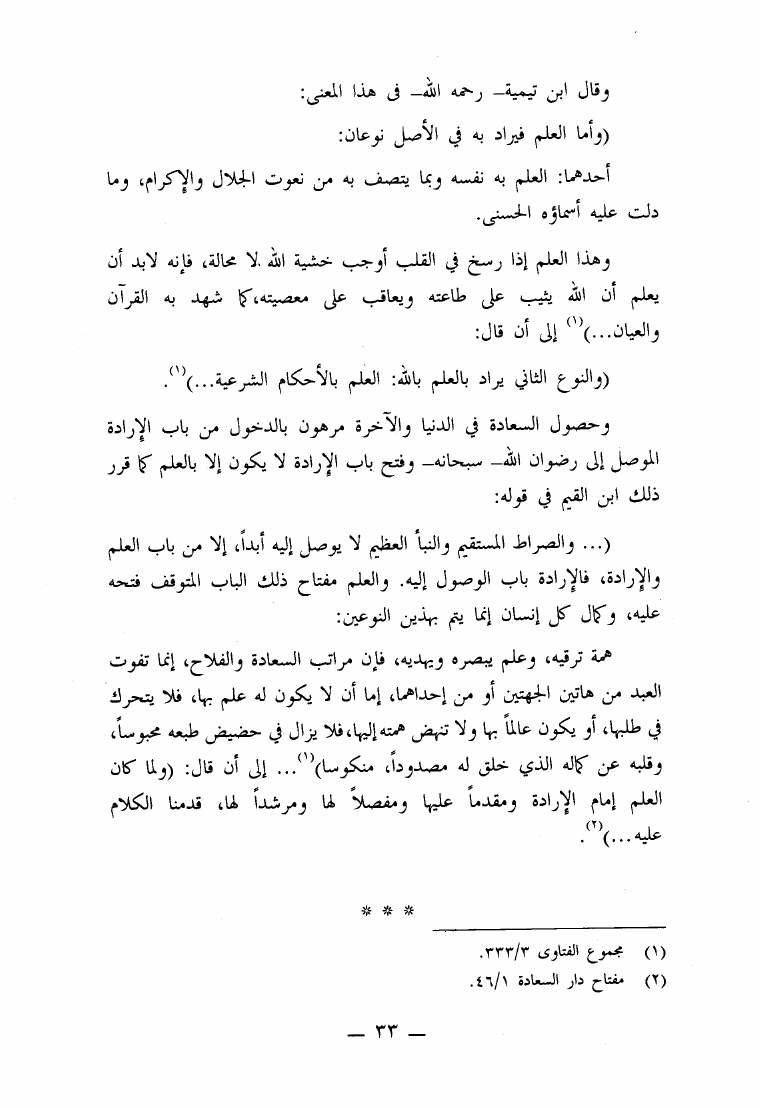 وقال ابن تيمية– رحمه الله– فى هذا المعنى:
(وأما العلم فيراد به في الأصل نوعان:
أحدهما: العلم به نفسه وبما يتصف به من نعوت الجلال والإكرام، وما
دلت عليه أسماؤه الحسنى.
وهذا العلم إذا رسخ في القلب أوجب خشية الله لا محالة، فإنه لابد أن
يعلم أن الله يثيب على طاعته ويعاقب على معصيته،كما شهد به القرآن
والعيان...)(١) إلى أن قال:
(والنوع الثاني يراد بالعلم بالله: العلم بالأحكام الشرعية...)(١).
وحصول السعادة في الدنيا والآخرة مرهون بالدخول من باب الإرادة
الموصل إلى رضوان الله– سبحانه– وفتح باب الإرادة لا يكون إلا بالعلم كما قرر
ذلك ابن القيم في قوله:
(... والصراط المستقيم والنبأ العظيم لا يوصل إليه أبداً، إلا من باب العلم
والإرادة، فالإرادة باب الوصول إليه. والعلم مفتاح ذلك الباب المتوقف فتحه
عليه، وكمال كل إنسان إنما يتم بهذين النوعين:
همة ترقيه، وعلم يبصره ويهديه، فإن مراتب السعادة والفلاح، إنما تفوت
العبد من هاتين الجهتين أو من إحداهما، إما أن لا يكون له علم بها، فلا يتحرك
في طلبها، أو يكون عالماً بها ولا تنهض همته إليها،فلا يزال في حضيض طبعه محبوساً،
وقلبه عن كماله الذي خلق له مصدوداً، منكوسا)(١)... إلى أن قال: (ولما كان
العلم إمام الإرادة ومقدماً عليها ومفصلاً لها ومرشداً لها، قدمنا الكلام
عليه...)(٢).
* * *
(١) مجموع الفتاوى ٣٣٣/٣.
(٢) مفتاح دار السعادة ٤٦/١.
– ٣٣ –